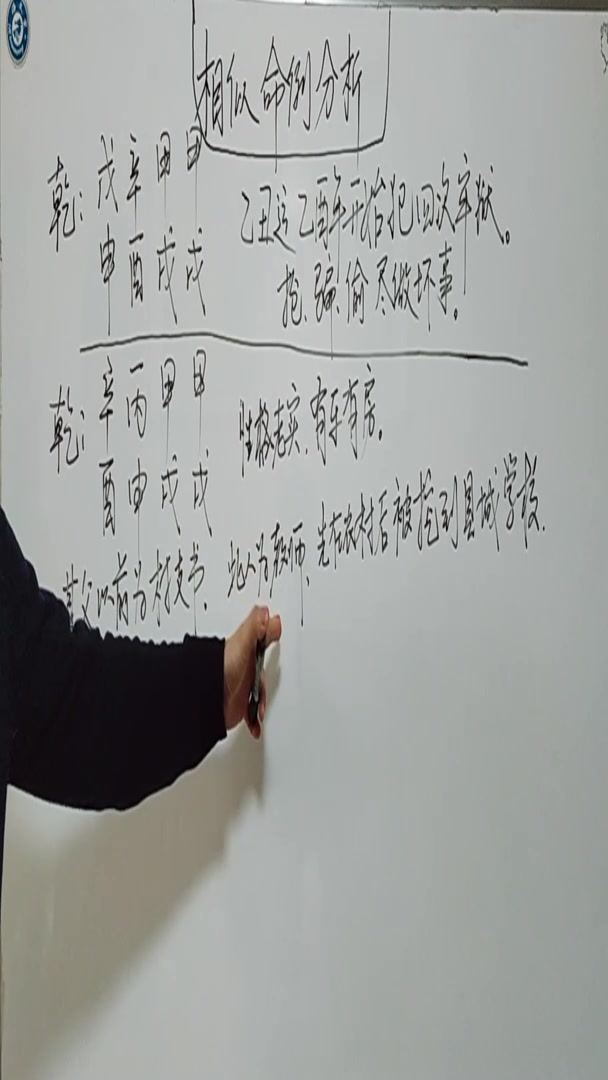 相似命例分析
乾: 戊辛甲甲
申酉戌戌
乙丑运乙酉年开始犯四次牢狱。
抢、骗、偷尽做坏事。
乾: 辛丙甲甲
酉申戌戌
性格老实、有车有房。
其父以前为村支书、此人为教师、先在农村后被挖到县城学校.